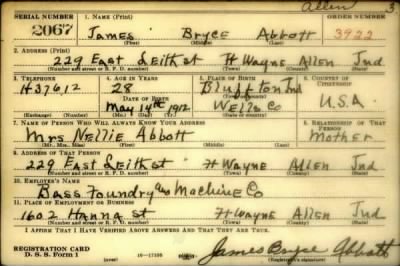 Allen 3
SERIAL NUMBER 1. NAME (Print) ORDER NUMBER
2067 James Bryce Abbott 3922
(First) (Middle) (Last)
2. ADDRESS (Print)
229 East Leith st Ft Wayne Allen Ind
(Number and street or R. F. D. number) (Town) (County) (State)
3. TELEPHONE 4. AGE IN YEARS 5. PLACE OF BIRTH 6. COUNTRY OF CITIZENSHIP
H37612 28 Bluffton Ind
DATE OF BIRTH (Town or county)
May 14th 1912 Wells Co U.S.A.
(Exchange) (Number) (Mo.) (Day) (Yr.) (State or country)
7. NAME OF PERSON WHO WILL ALWAYS KNOW YOUR ADDRESS 8. RELATIONSHIP OF THAT PERSON
Mrs Nellie Abbott Mother
(Mr., Mrs., Miss) (First) (Middle) (Last)
9. ADDRESS OF THAT PERSON
229 East Leith st Ft Wayne Allen Ind
(Number and street or R. F. D. number) (Town) (County) (State)
10. EMPLOYER'S NAME
Bass Foundry and Machine Co
11. PLACE OF EMPLOYMENT OR BUSINESS
1602 Hanna st Ft Wayne Allen Ind
(Number and street or R. F. D. number) (Town) (County) (State)
I AFFIRM THAT I HAVE VERIFIED ABOVE ANSWERS AND THAT THEY ARE TRUE.
REGISTRATION CARD
D. S. S. Form 1 16—17105 James Bryce Abbott